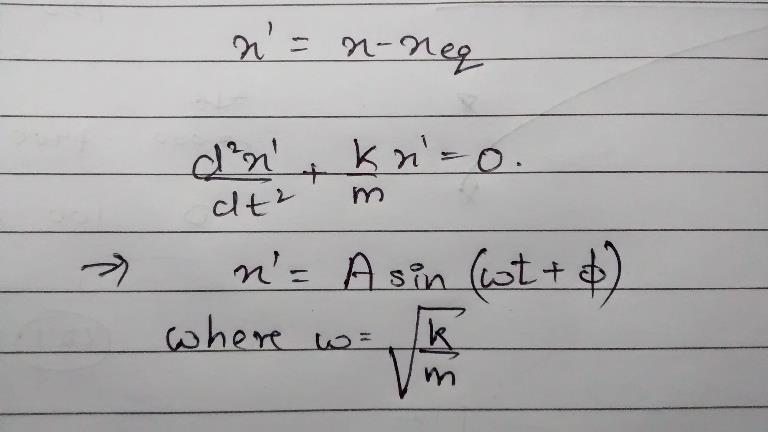 x' = x - x_eq
d²x'/dt² + k/m x' = 0.
⇒ x' = A sin (ωt + ϕ)
where ω = √(k/m)